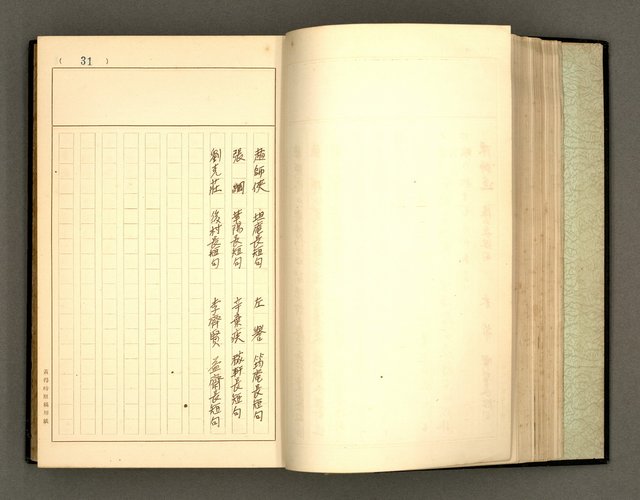 ( 31 )
趙師俠 坦庵長短句 左譽 筠庵長短句
張綱 華陽長短句 辛棄疾 稼軒長短句
劉克莊 後村長短句 李齊賢 益齋長短句
黃得時原稿用